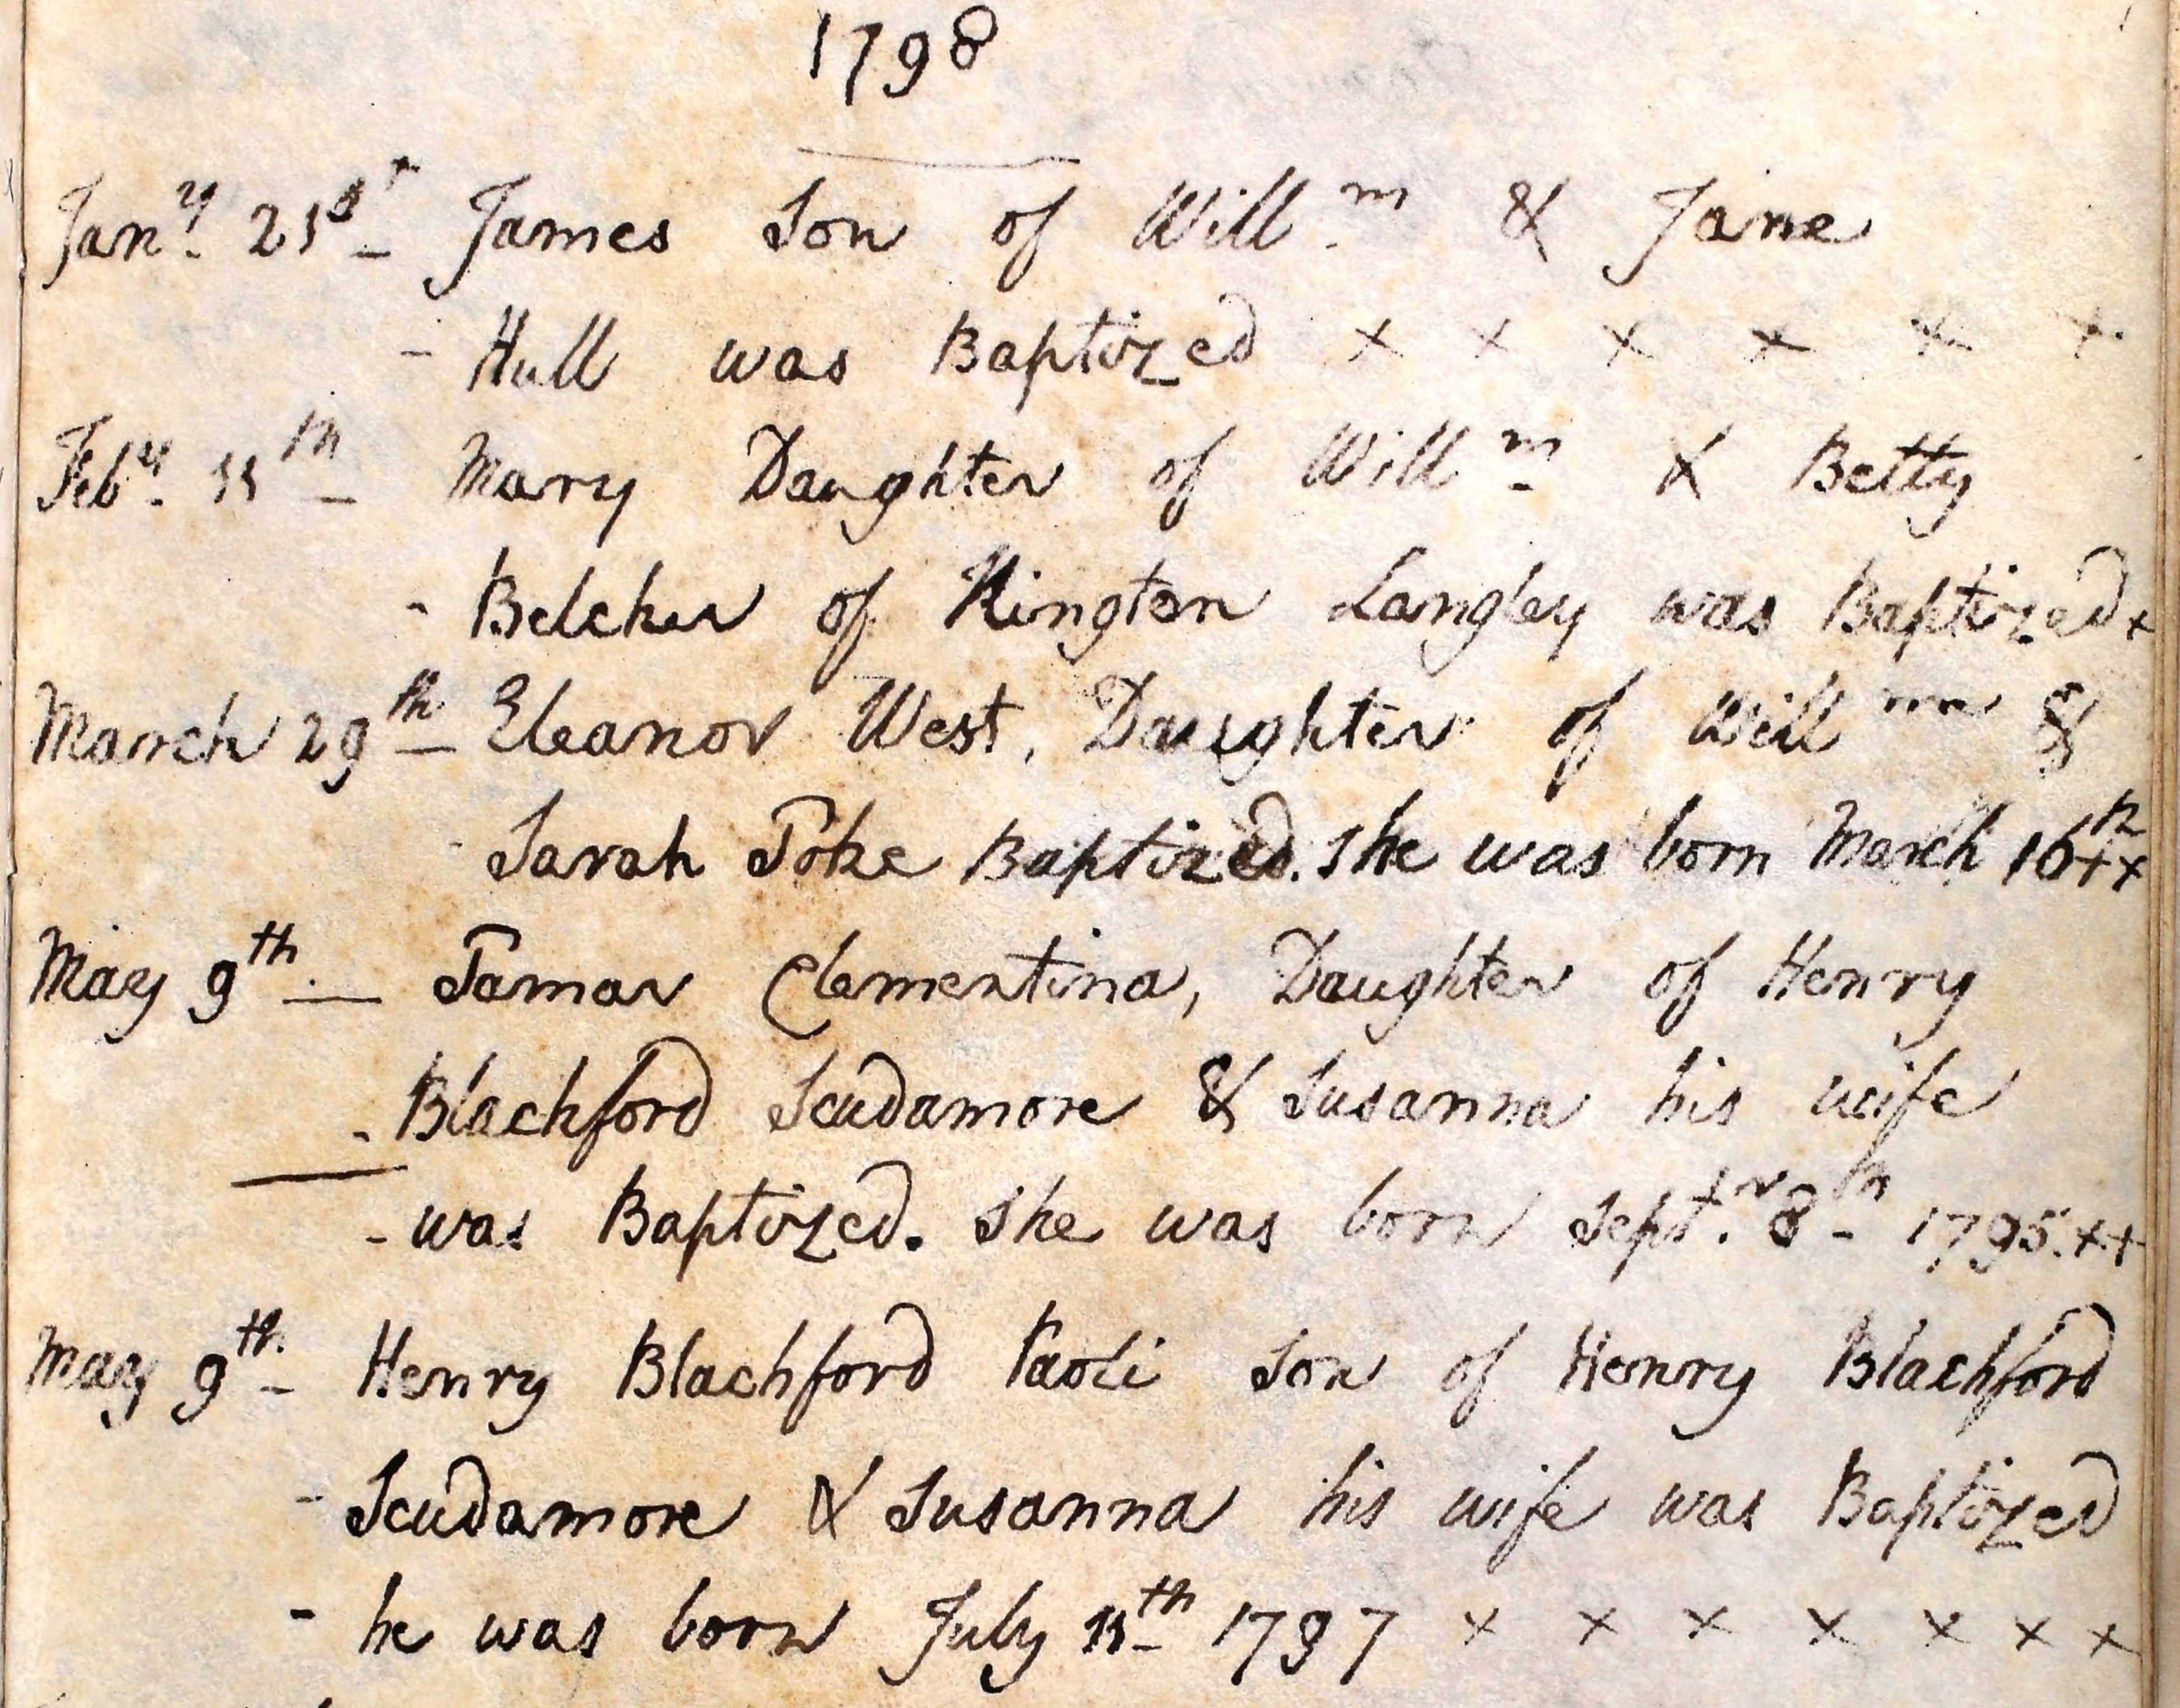 1798
Jany. 21st James Son of Willm. & Jane
- Hull was Baptized x x x x x x
Feby. 11th Mary Daughter of Willm. & Betty
- Belcher of Kington Langley was Baptized x
March 29th Eleanor West, Daughter of Willm &
- Sarah Toke Baptized. She was born March 16th x x
May 9th. — Tamar Clementina, Daughter of Henry
- Blachford Scudamore & Susanna his wife
- was Baptized. She was born Septr. 8th 1795. x x
May 9th. - Henry Blachford Paoli Son of Henry Blachford
- Scudamore & Susanna his wife was Baptized
- he was born July 11th 1797 x x x x x x x